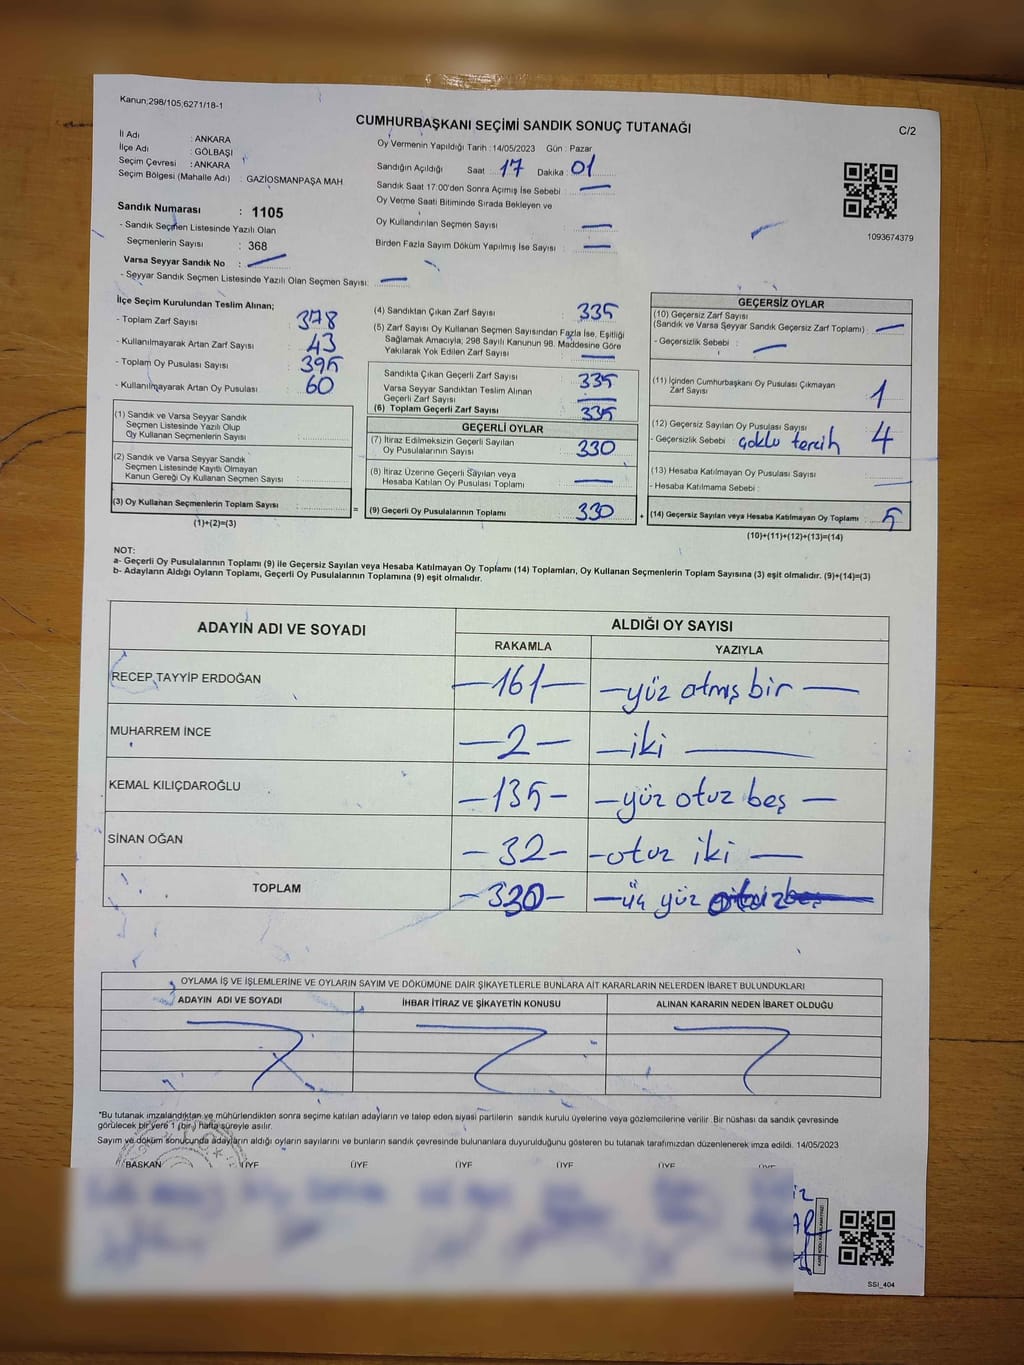 Kanun;298/105,6271/18-1
CUMHURBAŞKANI SEÇİMİ SANDIK SONUÇ TUTANAĞI
C/2
İl Adı : ANKARA
İlçe Adı : GÖLBAŞI
Seçim Çevresi : ANKARA
Seçim Bölgesi (Mahalle Adı) : GAZİOSMANPAŞA MAH
Oy Vermenin Yapıldığı Tarih :14/05/2023 Gün : Pazar
Sandığın Açıldığı Saat 17 Dakika 01
Sandık Saat 17:00'den Sonra Açımış İse Sebebi : —
Oy Verme Saati Bitiminde Sırada Bekleyen ve
Oy Kullandırılan Seçmen Sayısı : —
Birden Fazla Sayım Döküm Yapılmış İse Sayısı : —
1093674379
Sandık Numarası : 1105
- Sandık Seçmen Listesinde Yazılı Olan
Seçmenlerin Sayısı : 368
Varsa Seyyar Sandık No : —
- Seyyar Sandık Seçmen Listesinde Yazılı Olan Seçmen Sayısı: —
İlçe Seçim Kurulundan Teslim Alınan;
- Toplam Zarf Sayısı : 378
- Kullanılmayarak Artan Zarf Sayısı : 43
- Toplam Oy Pusulası Sayısı : 395
- Kullanılmayarak Artan Oy Pusulası : 60
(1) Sandık ve Varsa Seyyar Sandık
Seçmen Listesinde Yazılı Olup
Oy Kullanan Seçmenlerin Sayısı :
(2) Sandık ve Varsa Seyyar Sandık
Seçmen Listesinde Kayıtlı Olmayan
Kanun Gereği Oy Kullanan Seçmen Sayısı :
(3) Oy Kullanan Seçmenlerin Toplam Sayısı :
(1)+(2)=(3)
(4) Sandıktan Çıkan Zarf Sayısı : 335
(5) Zarf Sayısı Oy Kullanan Seçmen Sayısından Fazla İse, Eşitliği
Sağlamak Amacıyla, 298 Sayılı Kanunun 98. Maddesine Göre
Yakılarak Yok Edilen Zarf Sayısı : —
Sandıkta Çıkan Geçerli Zarf Sayısı : 335
Varsa Seyyar Sandıktan Teslim Alınan
Geçerli Zarf Sayısı : —
(6) Toplam Geçerli Zarf Sayısı : 335
GEÇERLİ OYLAR
(7) İtiraz Edilmeksizin Geçerli Sayılan
Oy Pusulalarının Sayısı : 330
(8) İtiraz Üzerine Geçerli Sayılan veya
Hesaba Katılan Oy Pusulası Toplamı : —
= (9) Geçerli Oy Pusulalarının Toplamı : 330
GEÇERSİZ OYLAR
(10) Geçersiz Zarf Sayısı
(Sandık ve Varsa Seyyar Sandık Geçersiz Zarf Toplamı) : —
- Geçersizlik Sebebi : —
(11) İçinden Cumhurbaşkanı Oy Pusulası Çıkmayan
Zarf Sayısı : 1
(12) Geçersiz Sayılan Oy Pusulası Sayısı : 4
- Geçersizlik Sebebi : çoklu tercih
(13) Hesaba Katılmayan Oy Pusulası Sayısı : —
- Hesaba Katılmama Sebebi :
+ (14) Geçersiz Sayılan veya Hesaba Katılmayan Oy Toplamı : 5
(10)+(11)+(12)+(13)=(14)
NOT:
a- Geçerli Oy Pusulalarının Toplamı (9) ile Geçersiz Sayılan veya Hesaba Katılmayan Oy Toplamı (14) Toplamları, Oy Kullanan Seçmenlerin Toplam Sayısına (3) eşit olmalıdır. (9)+(14)=(3)
b- Adayların Aldığı Oyların Toplamı, Geçerli Oy Pusulalarının Toplamına (9) eşit olmalıdır.
ADAYIN ADI VE SOYADI
ALDIĞI OY SAYISI
RAKAMLA YAZIYLA
RECEP TAYYİP ERDOĞAN —161— —yüz atmış bir—
MUHARREM İNCE —2— —iki—
KEMAL KILIÇDAROĞLU —135— —yüz otuz beş—
SİNAN OĞAN —32— —otuz iki—
TOPLAM —330— —üç yüz otuz
OYLAMA İŞ VE İŞLEMLERİNE VE OYLARIN SAYIM VE DÖKÜMÜNE DAİR ŞİKAYETLERLE BUNLARA AİT KARARLARIN NELERDEN İBARET BULUNDUKLARI
ADAYIN ADI VE SOYADI İHBAR İTİRAZ VE ŞİKAYETİN KONUSU ALINAN KARARIN NEDEN İBARET OLDUĞU
*Bu tutanak imzalandıktan ve mühürlendikten sonra seçime katılan adayların ve talep eden siyasi partilerin sandık kurulu üyelerine veya gözlemcilerine verilir. Bir nüshası da sandık çevresinde
görülecek bir yere 1 (bir) hafta süreyle asılır.
Sayım ve döküm sonucunda adayların aldığı oyların sayılarını ve bunların sandık çevresinde bulunanlara duyurulduğunu gösteren bu tutanak tarafımızdan düzenlenerek imza edildi. 14/05/2023
BAŞKAN ÜYE ÜYE ÜYE ÜYE ÜYE ÜYE
SSI_404